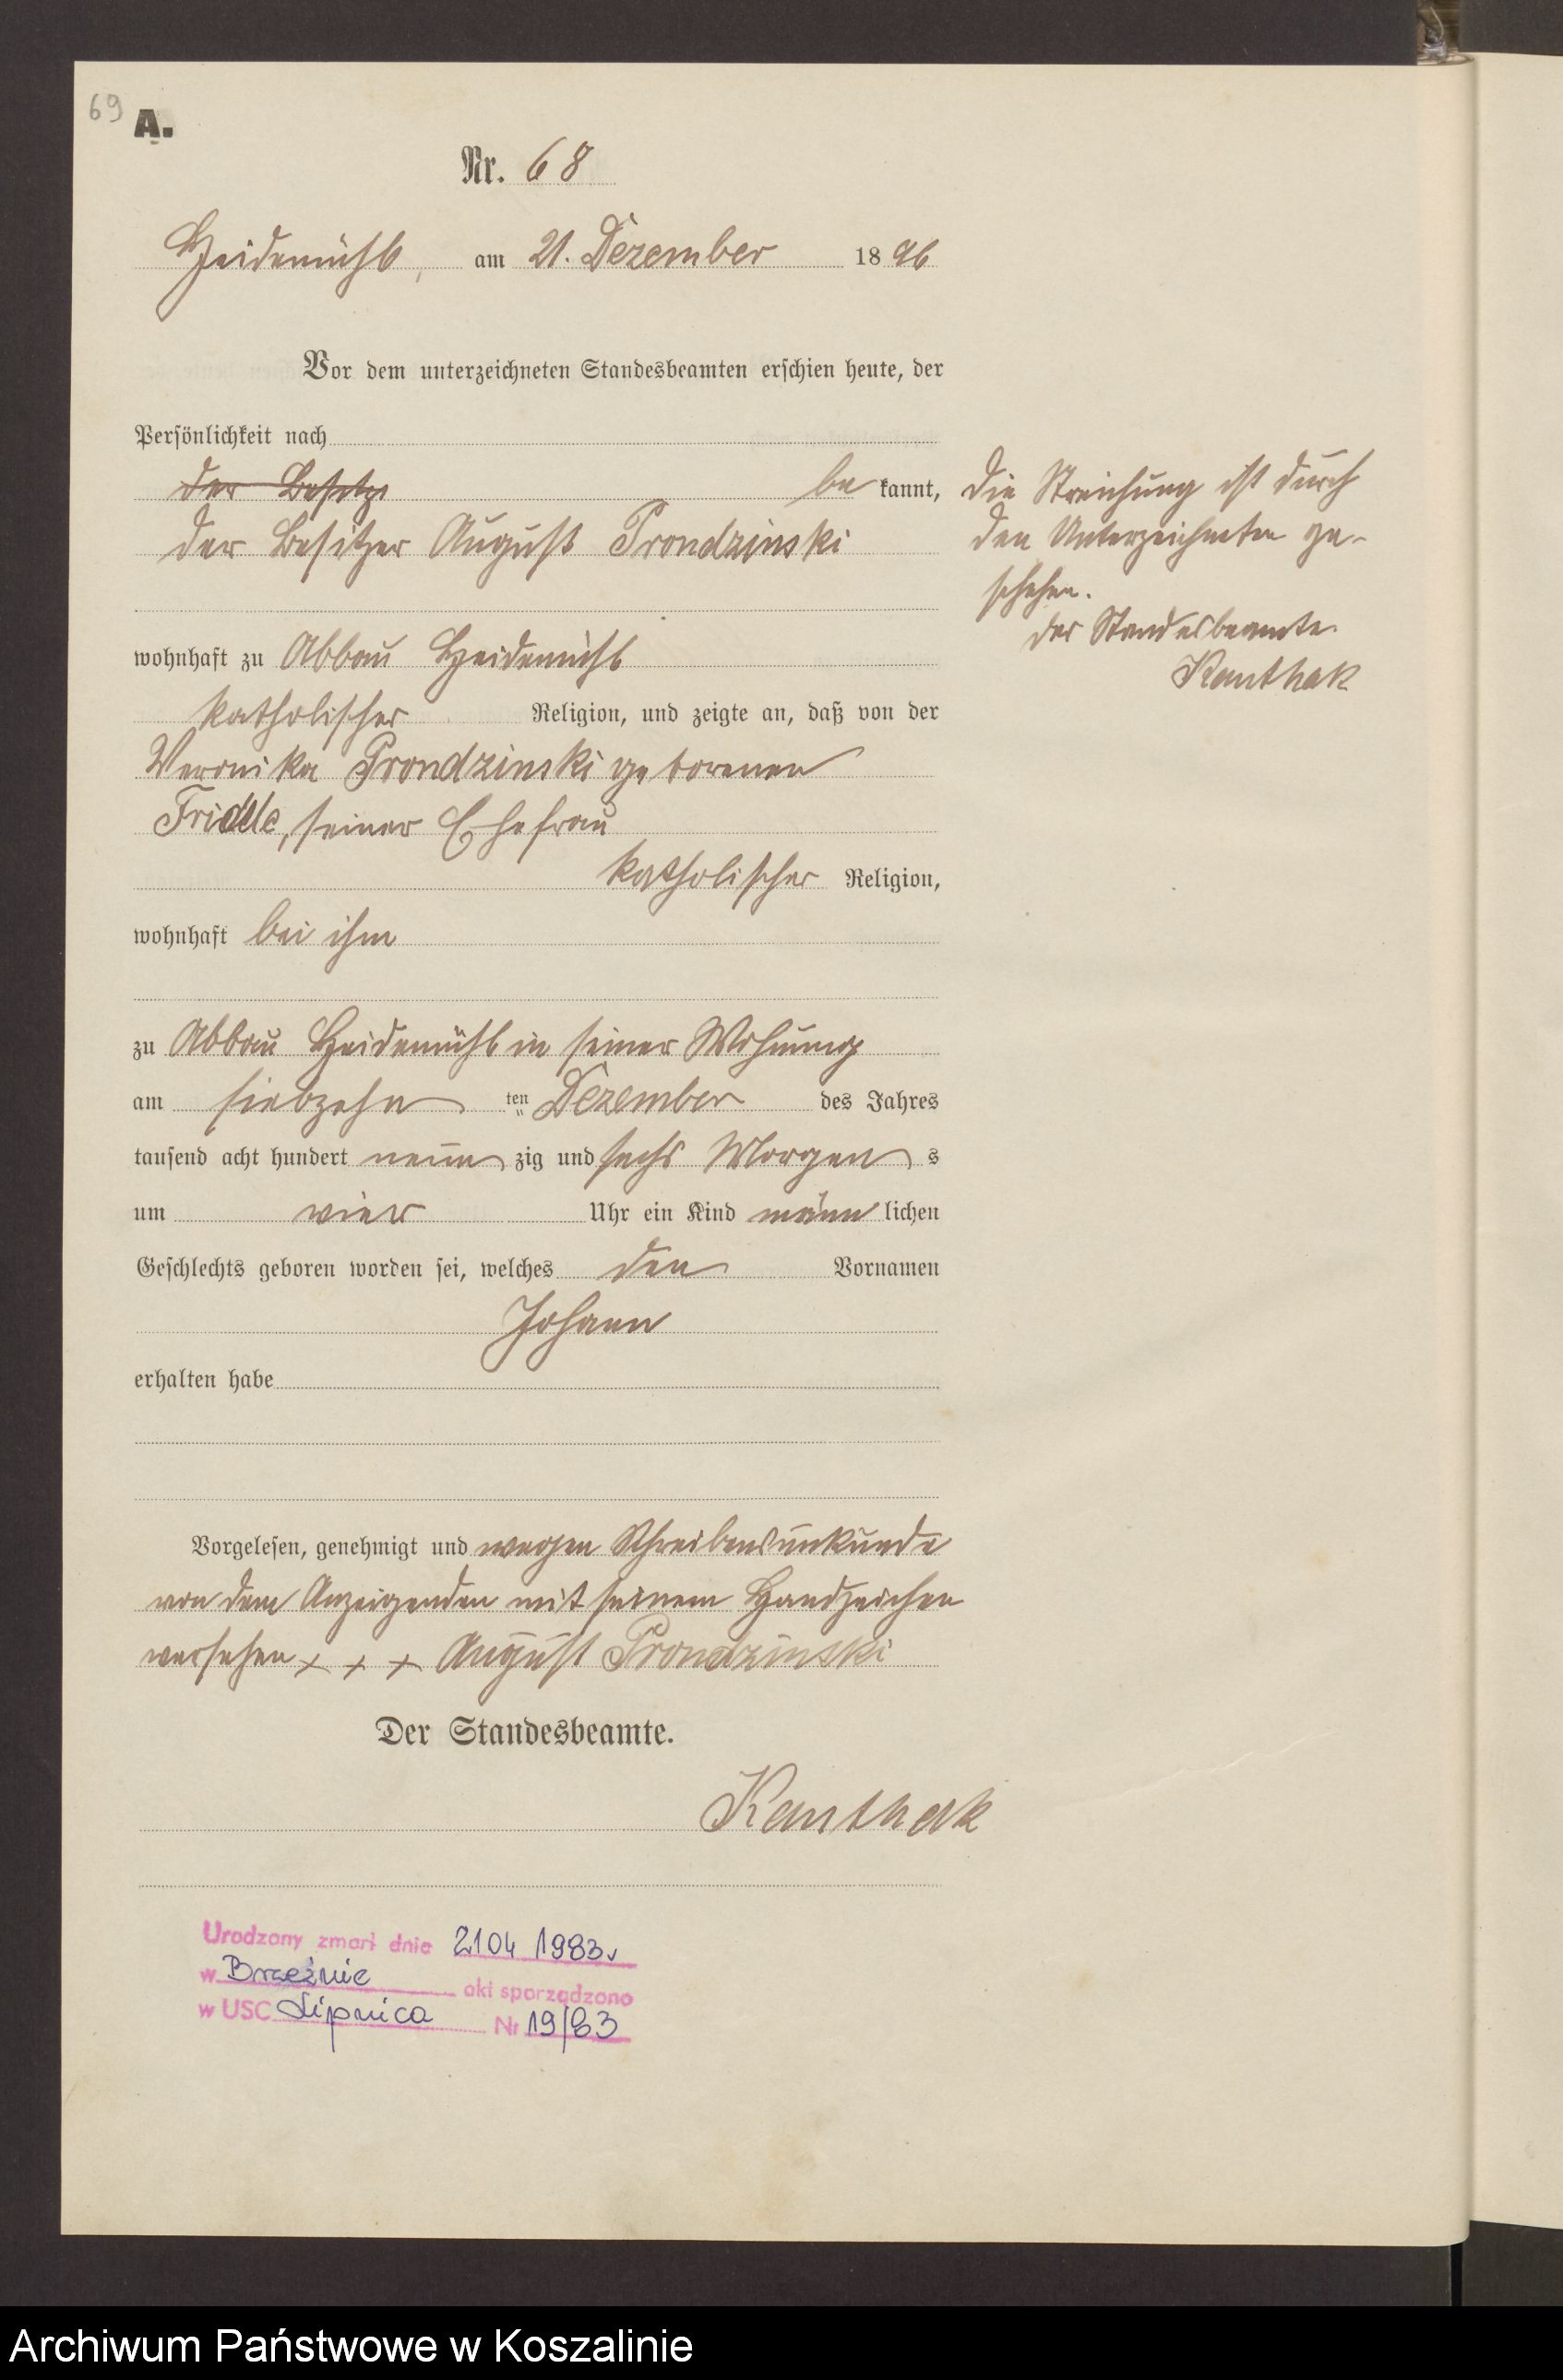 69
A.
Nr. 68
Heidemühl, am 21. Dezember 1896
Vor dem unterzeichneten Standesbeamten erschien heute, der
Persönlichkeit nach
der Besitze be kannt,
der Besitzer August Prondzinski
wohnhaft zu Abbau Heidemühl
katholischer Religion, und zeigte an, daß von der
Veronika Prondzinski geborenen
seiner Ehefrau
katholischer Religion,
wohnhaft bei ihm
zu Abbau Heidemühl in seiner Wohnung
am siebzehn ten Dezember des Jahres
tausend acht hundert neun zig und sechs Morgen s
um vier Uhr ein Kind männ lichen
Geschlechts geboren worden sei, welches den Vornamen
Johann
erhalten habe
Vorgelesen, genehmigt und wegen Schreibensunkunde
von dem Anzeigenden mit seinem Handzeichen
versehen + + + August Prondzinski
Der Standesbeamte.
Kanthak
Die Streichung ist durch
den Unterzeichneten ge-
schehen.
Der Standesbeamte
Kanthak
Urodzony zmarł dnia 21 04 1983 r
w Brzeźnie akt sporządzono
w USC Lipnica Nr 19/83
Archiwum Państwowe w Koszalinie